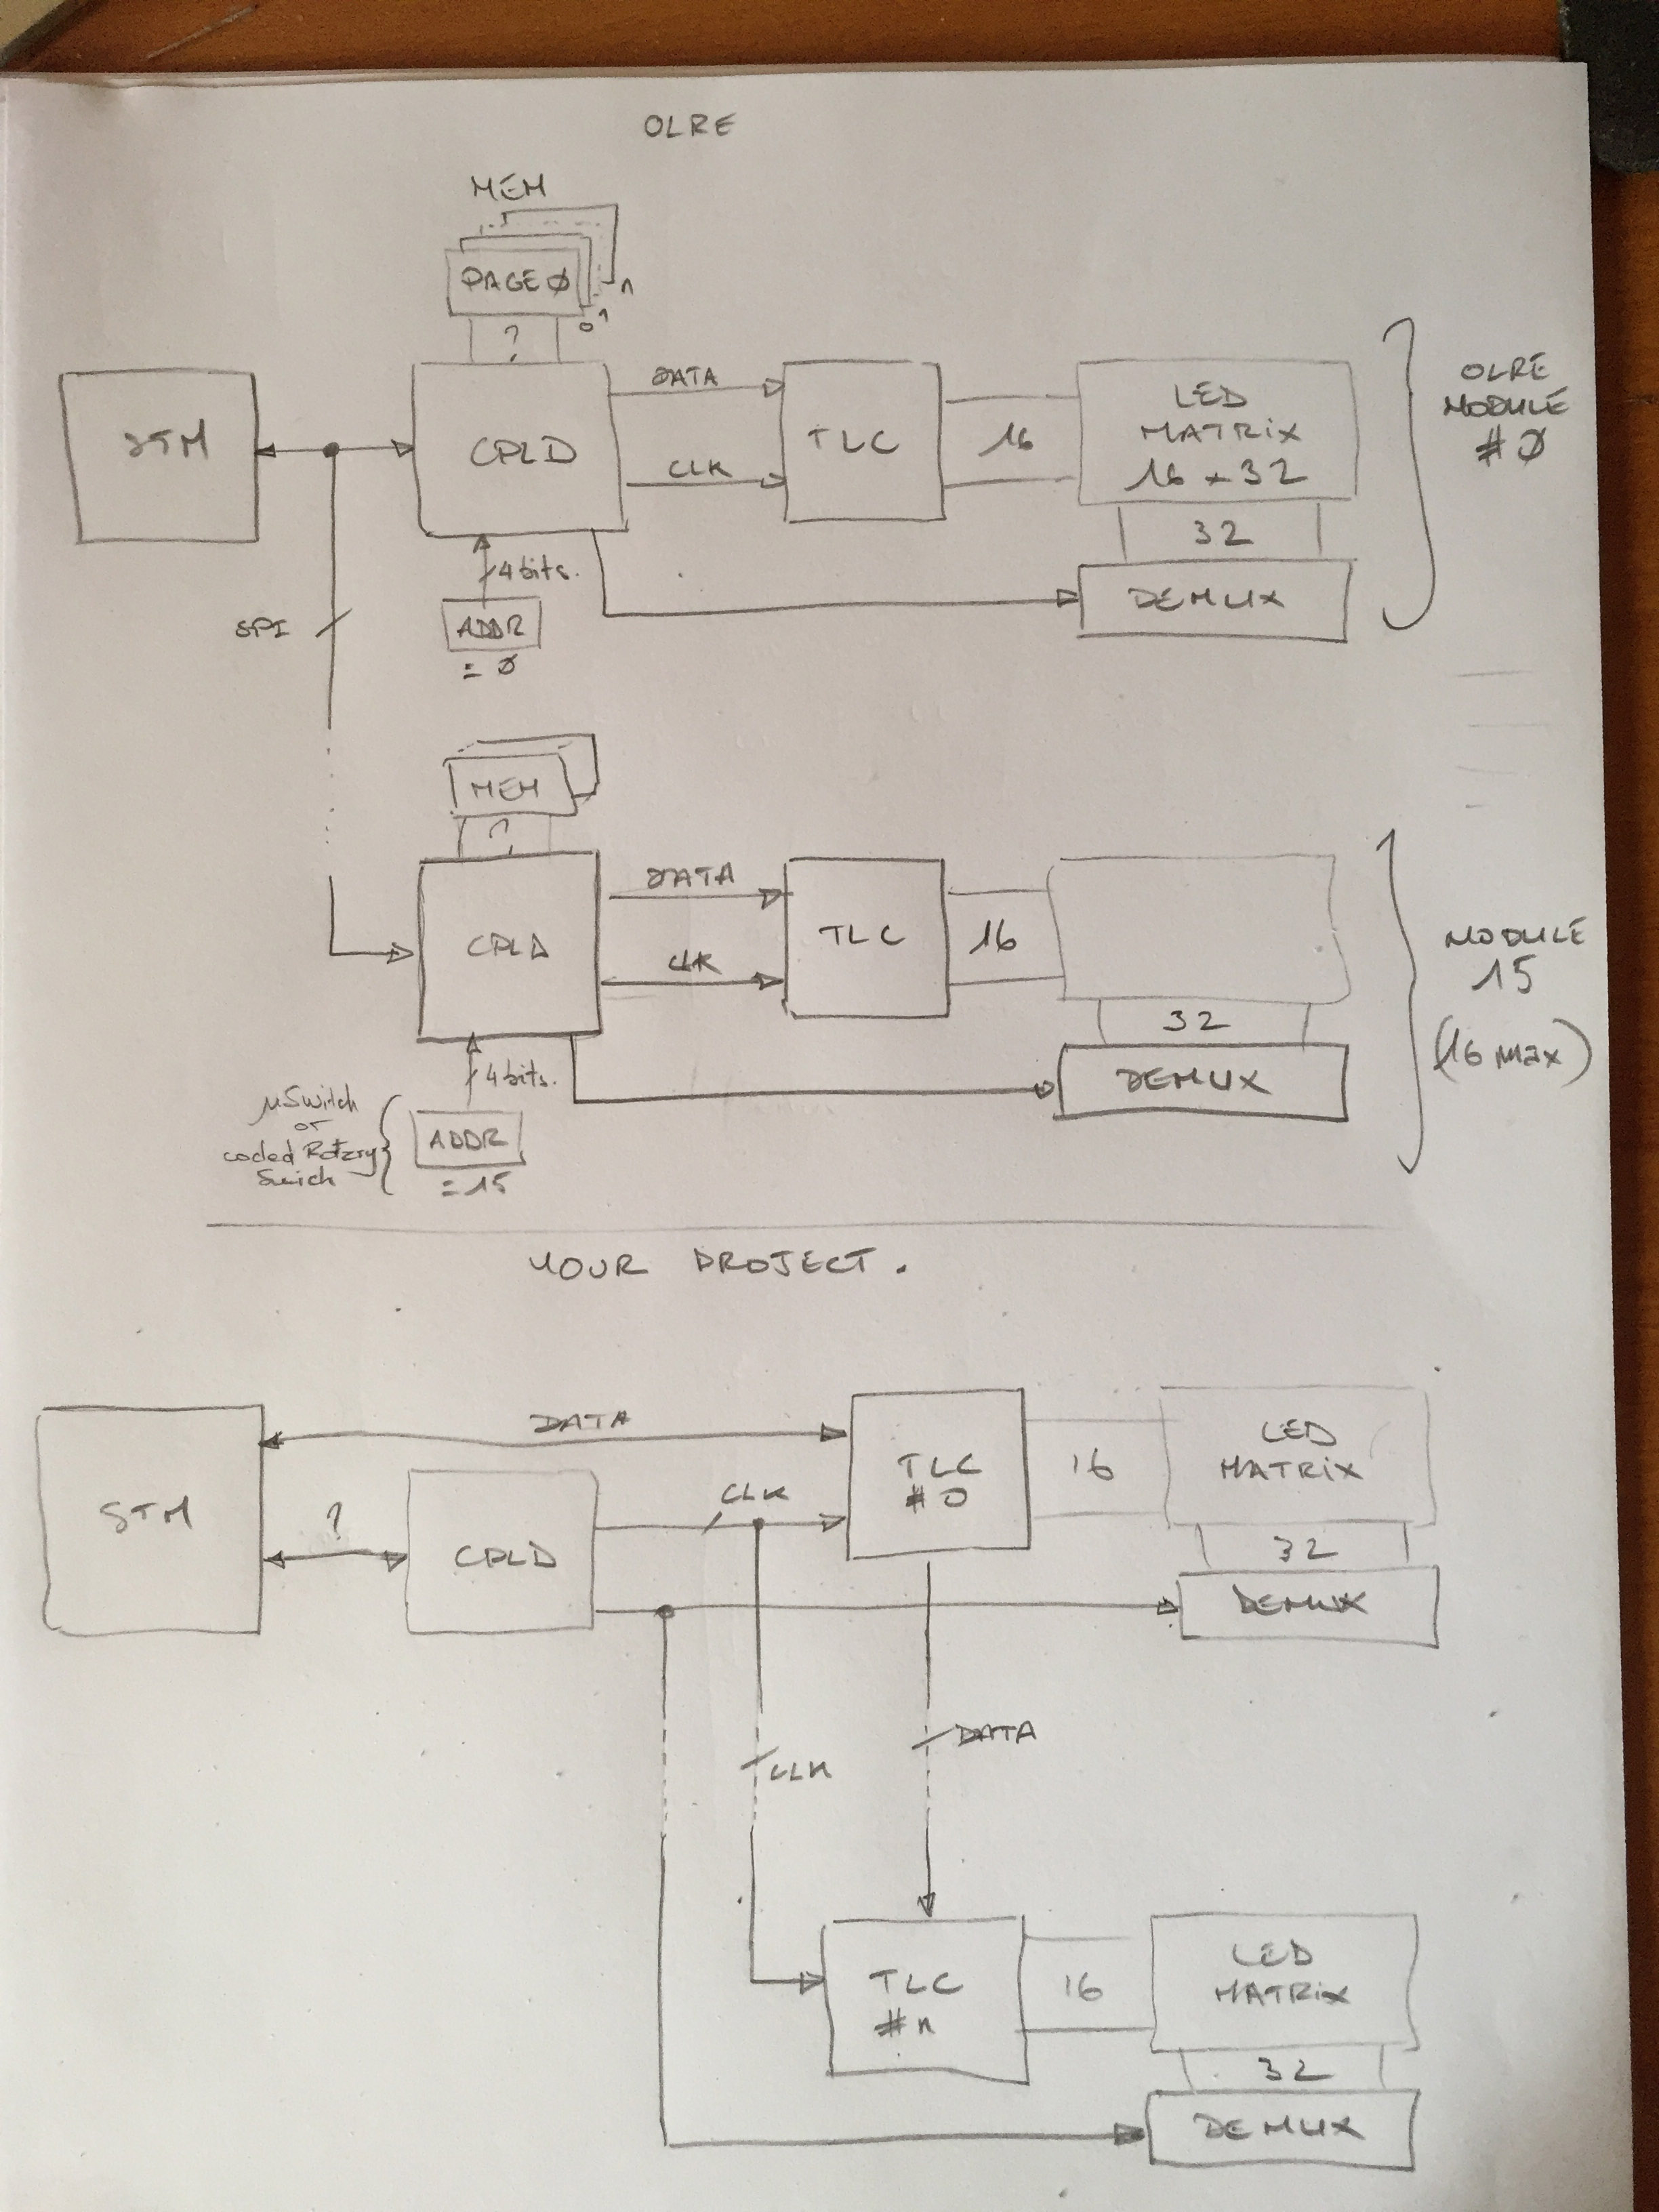 OLRE
MEM
PAGE 0
n
01
?
STM
CPLD
DATA
CLK
TLC
16
LED
MATRIX
16 x 32
32
DEMUX
OLRE
MODULE
# 0
SPI
4 bits.
ADDR
= 0
MEM
?
CPLD
DATA
CLK
TLC
16
32
DEMUX
MODULE
15
(16 max)
4 bits.
µSwitch
or
coded Rotary
Swich
ADDR
= 15
YOUR PROJECT.
STM
DATA
?
CPLD
CLK
TLC
# 0
16
LED
MATRIX
32
DEMUX
CLK
DATA
TLC
# n
16
LED
MATRIX
32
DEMUX